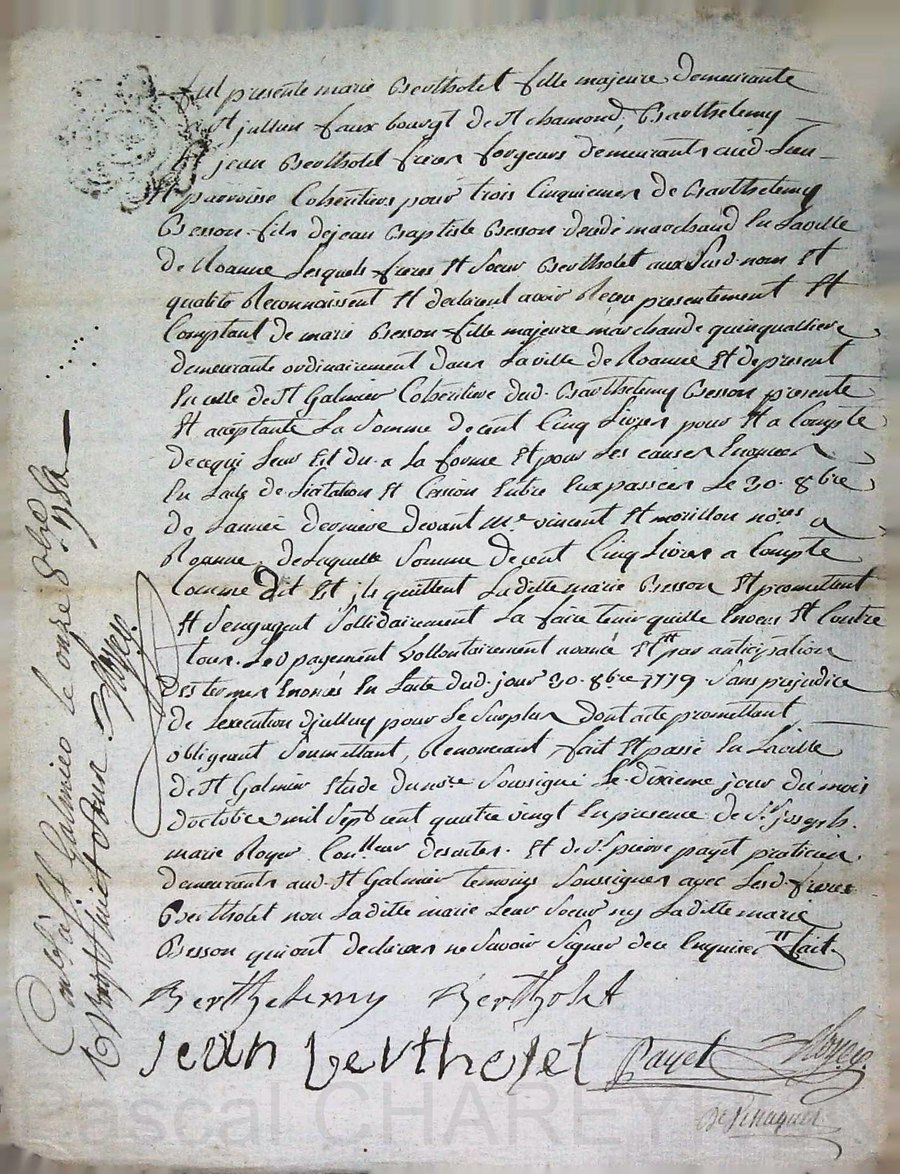 fut presente marie Bertholet fille majeure demeurante
a St jullien faux bourgt de St chamond, Barthelemy
Et jean Bertholet freres forgeurs demeurants aud. lieu
Et parroisse Coheritiers pour trois Cinquiemes de Barthelemy
Besson fils de jean Baptiste Besson decedé marchand En la ville
de Roanne Lesquels freres Et Soeur Bertholet aux Susd. noms Et
qualité Reconnaissent Et declarent avoir Receu presentement Et
Comptant de marie Besson fille majeure marchande quinqualliere
demeurante ordinairement dans La ville de Roanne Et de present
En celle de St Galmier Coheritiere dud. Barthelemy Besson presente
Et acceptante La Somme de cent Cinq Livres pour Et a Compte
de ce qui Leur Est du a La forme Et pour Les causes Enoncées
En Lacte de Cession Entre Eux passées Le 30. 8bre
de Lannée derniere devant Me vincent Et morillon nores a
Roanne, de Laquelle Somme de cent Cinq Livres a Compte
Comme dit Est ils quittent Laditte marie Besson Et promettent
Et S'engagent Sollidairement La faire tenir quitte Envers Et Contre
tous. Led payement vollontairement avancé Et par anticipation
des termes Enoncés En Lacte dud. jour 30. 8bre 1779. Sans prejudice
de Lexecution dicelluy pour Le Surplus dont acte promettant
obligeant Soumettant, Renoncant fait Et passé En La ville
de St Galmier Etude du nore Soussigné Le dixieme jour du mois
doctobre mil Sept cent quatre vingt En presence de Sr joseph
marie Royer Conlleur des actes. Et de Sr pierre payet praticien
demeurants aud. St Galmier temoins Soussignes avec Lesd. freres
Bertholet non Laditte marie Leur Soeur ny Laditte marie
Besson qui ont declaré ne Savoir Signer de ce Enquises Et fait.
Berthelemy Bertholet
jean bertholet Payet Royer
Conlé a St Galmier le onze 8bre 1780
R vingt huit sols Royer
Pascal CHAREYRON